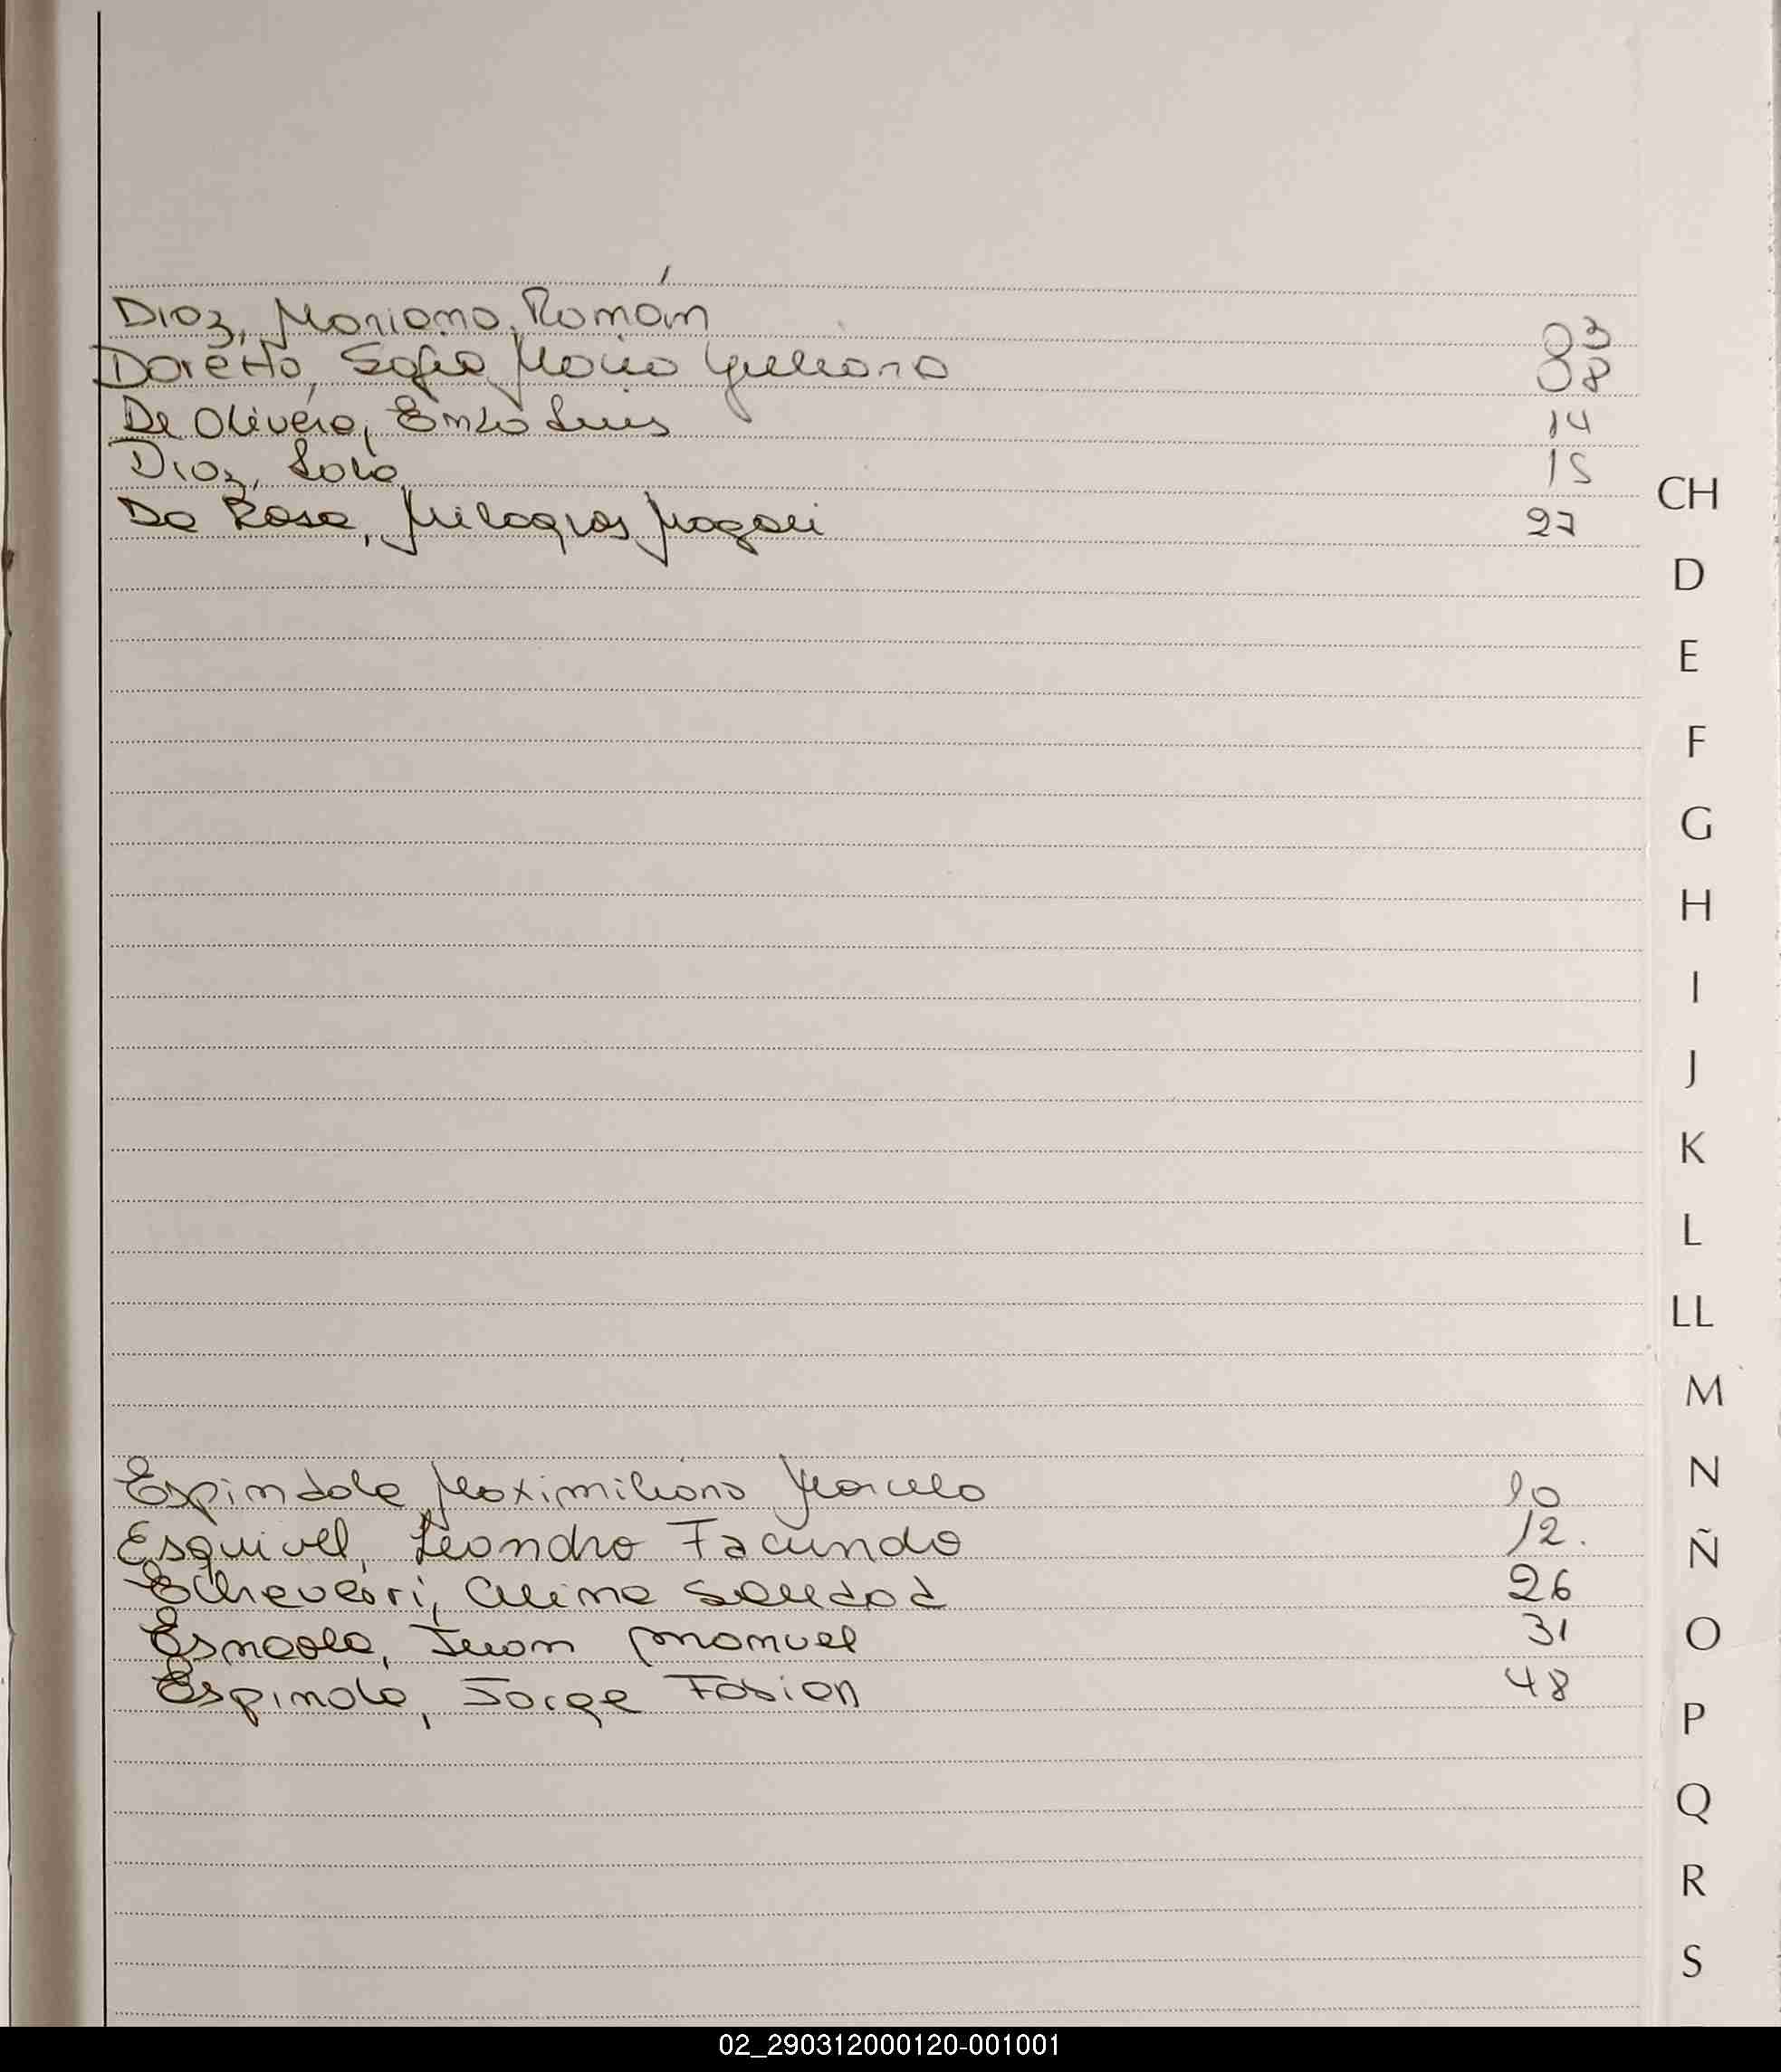 Diaz, Mariano Román 03
Doretto, Sofia Maria Yuliana 08
De Olivera, Enzo Luis 14
Diaz, Sola 15
Da Rosa, Milagros Magali 27
CH
D
E
F
G
H
I
J
K
L
LL
M
Espindola Maximiliano Marcelo 10
N
Esquivel, Leandro Facundo 12.
Ñ
Echeverri, Celina Soledad 26
Esnaola, Juan Manuel 31
O
Espinola, Jorge Fabian 48
P
Q
R
S
02_290312000120-001001